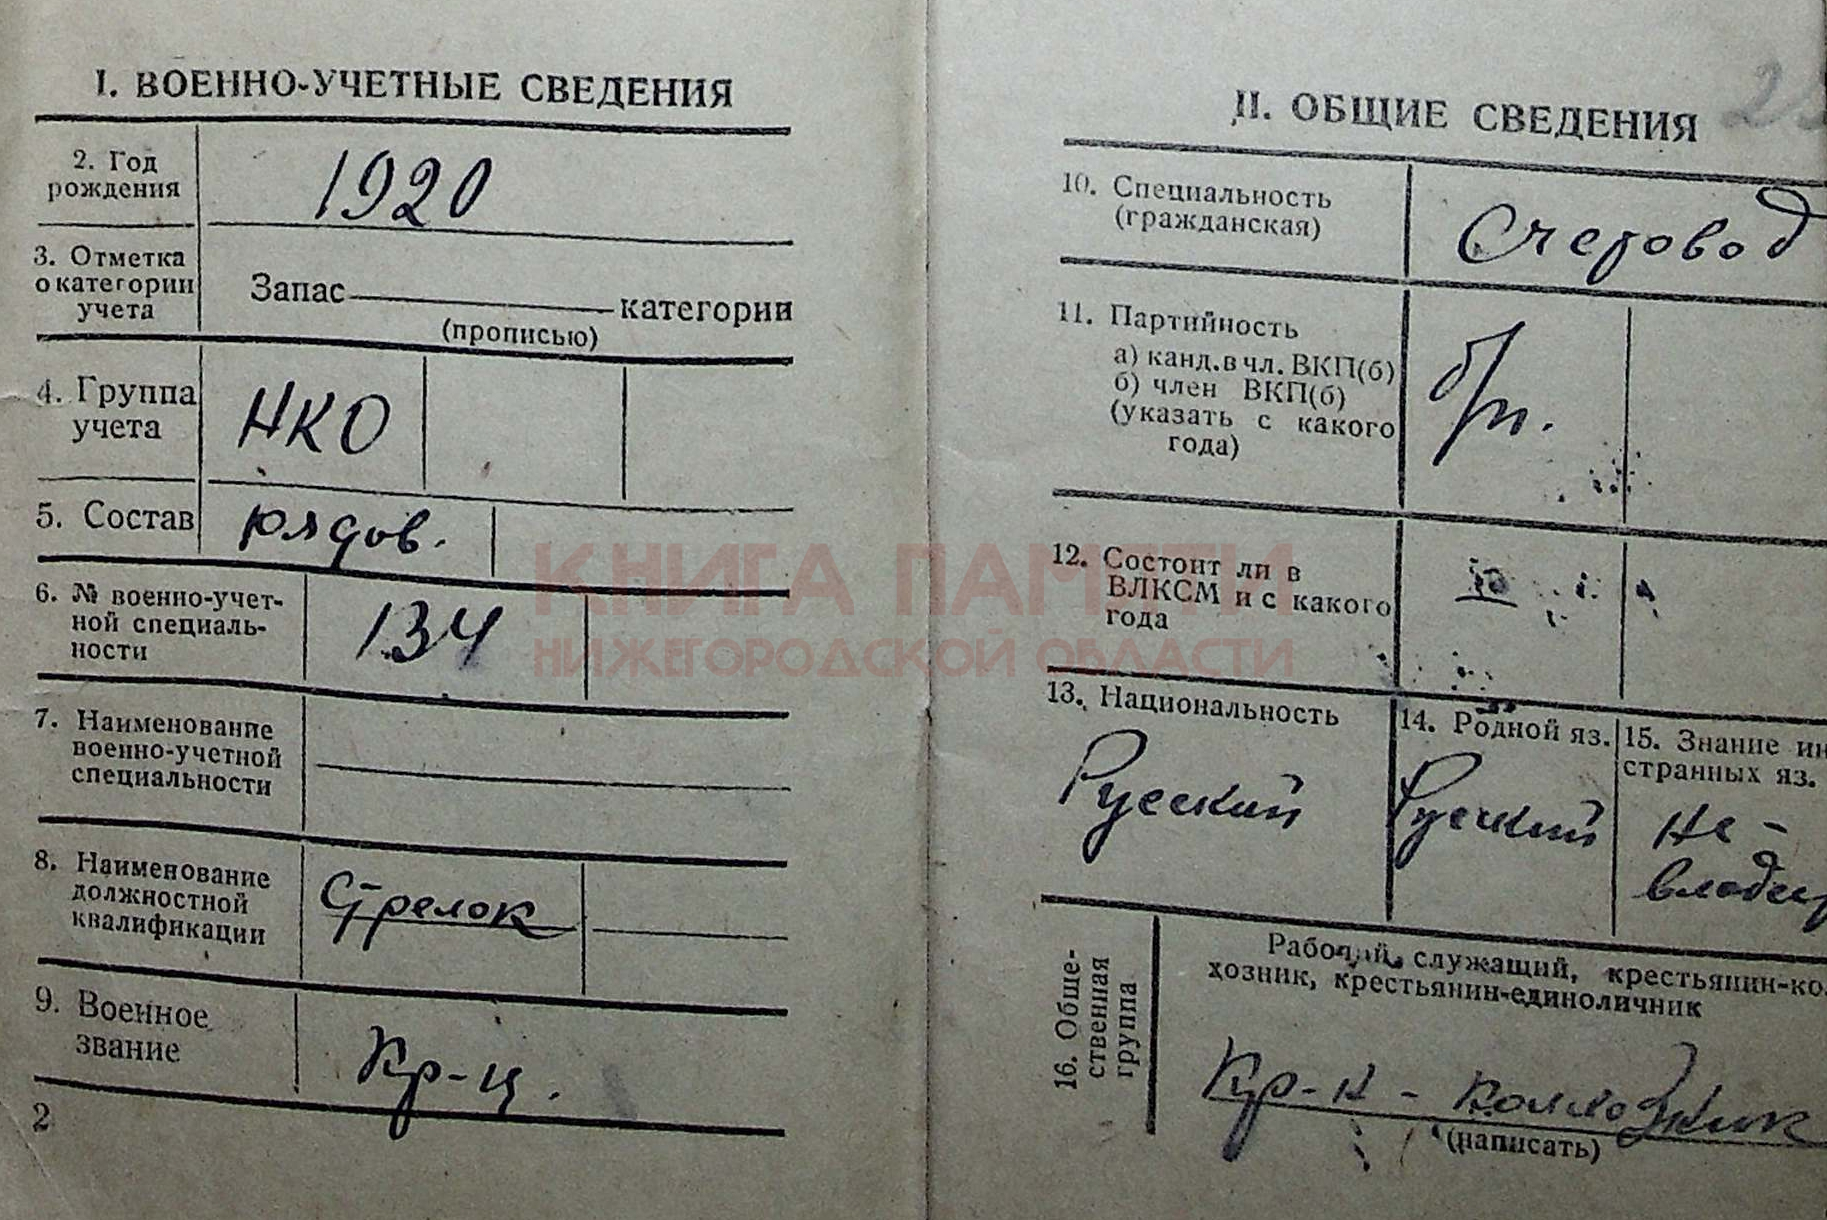 I. ВОЕННО-УЧЕТНЫЕ СВЕДЕНИЯ
2. Год
рождения
1920
3. Отметка
о категории
учета
Запас категории
(прописью)
4. Группа
учета
НКО
5. Состав
рядов.
6. № военно-учет-
ной специаль-
ности
134
7. Наименование
военно-учетной
специальности
8. Наименование
должностной
квалификации
Стрелок
9. Военное
звание
Кр-ц.
2
II. ОБЩИЕ СВЕДЕНИЯ
10. Специальность
(гражданская)
Счетовод
11. Партийность
а) канд. в чл. ВКП(б)
б) член ВКП(б)
(указать с какого
года)
б/п.
12. Состоит ли в
ВЛКСМ и с какого
года
13. Национальность
Русский
14. Родной яз.
Русский
15. Знание ин
странных яз.
не -
владеет
16. Обще-
ственная
группа
Рабочий, служащий, крестьянин-ко
хозник, крестьянин-единоличник
Кр-н - колхозник
(написать)
КНИГА ПАМЯТИ
НИЖЕГОРОДСКОЙ ОБЛАСТИ